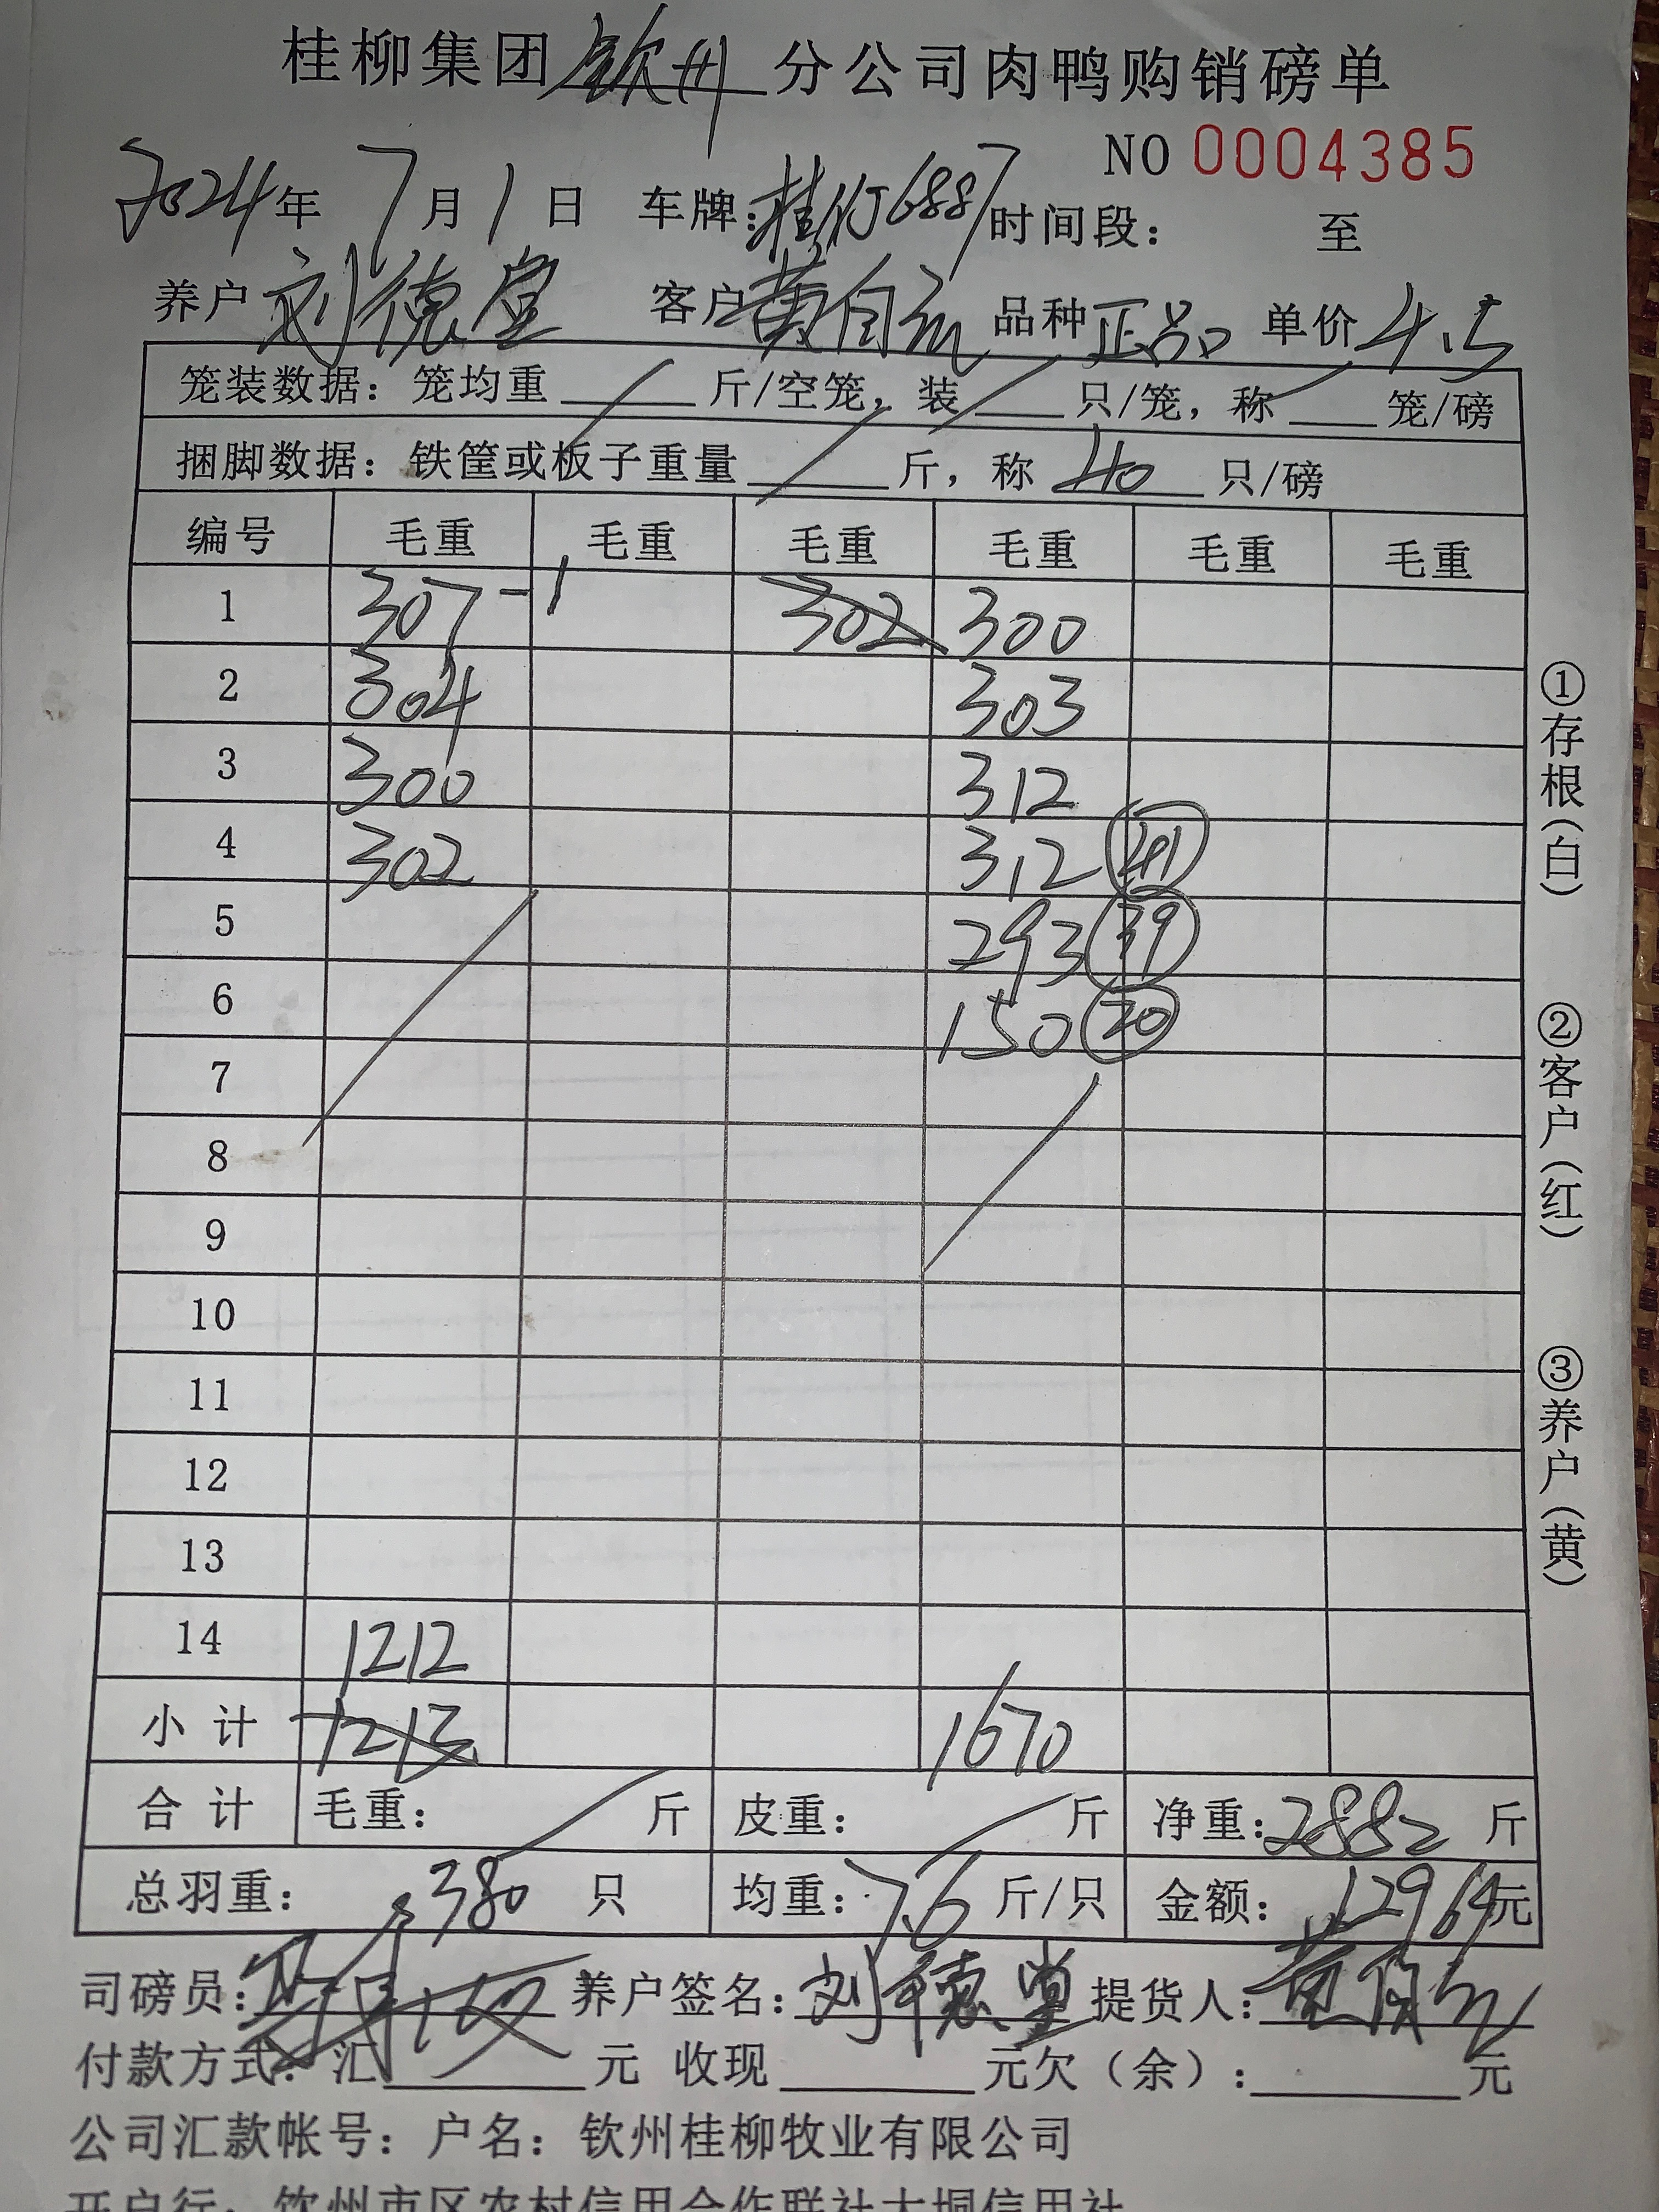 桂柳集团 钦州 分公司肉鸭购销磅单
NO 0004385
2024年 7月 1日 车牌: 6887 时间段: 至
养户 刘德堂 客户 黄自 品种 正品 单价 4.5
笼装数据: 笼均重 斤/空笼, 装 只/笼, 称 笼/磅
捆脚数据: 铁筐或板子重量 斤, 称 40 只/磅
编号 毛重 毛重 毛重 毛重 毛重 毛重
1 307-1 302 300
2 304 303
3 300 312
4 302 312 41
5 293 39
6 150 20
7
8
9
10
11
12
13
14 1212
小计 1213 1670
合计 毛重: 斤 皮重: 斤 净重: 2882 斤
总羽重: 380 只 均重: 7.6 斤/只 金额: 12964元
司磅员: 养户签名: 刘德堂 提货人: 黄自
付款方式: 汇 元 收现 元欠(余): 元
公司汇款帐号: 户名: 钦州桂柳牧业有限公司
开户行: 钦州市区农村信用合作联社大垌信用社
①存根(白)
②客户(红)
③养户(黄)